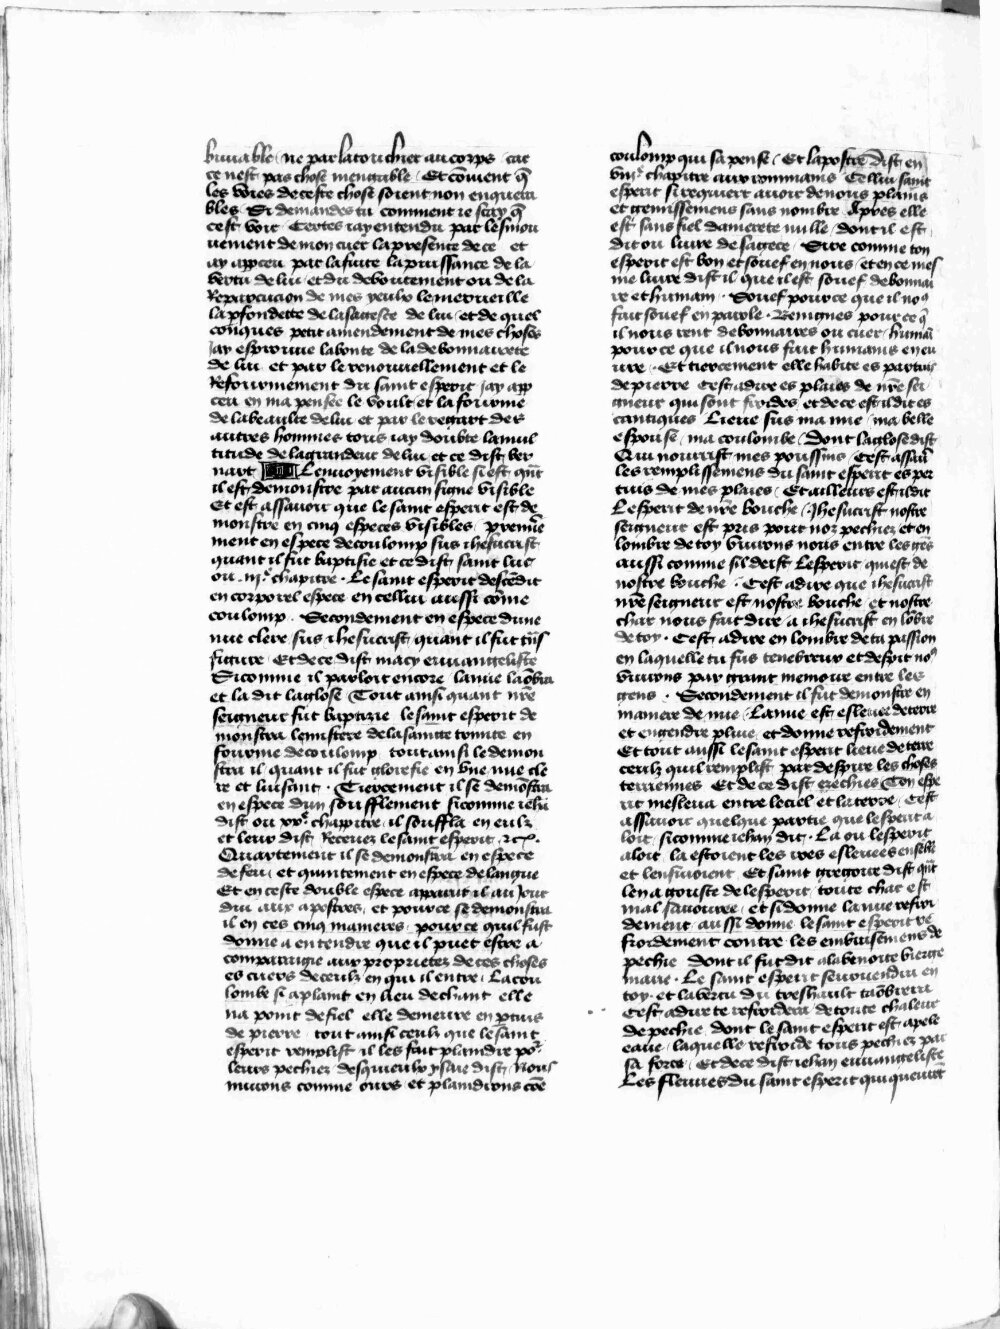 buuable / ne par latouchier au corps car
ce nest pas chose mengable / Et couient q̄
les voies de ceste chose soient non enquera
bles Si demandes tu comment ie scay q̄
cest voir Certes iay entendu par les mou
uement de mon cuer la presence de ce et
ay apceu par la fuite la puissance de la
vertu de lui / et du deboutement ou de la
Reparcucion de mes yeulx le merueille
la pfondette de la sagesce de lui / et de quel
conques petit amendement de mes choses
Jay esprouue la bonte de la debonnairete
de lui et par le renouuellement et le
Refourmement du saint esperit iay app
ceu en ma pensee le voult et la fourme
de la beaulte de lui et par le regart des
autres hommes tous iay doubte la mul
titude de la grandeur de lui et ce dist ber
nart Lenuoyement visible si est quāt
il est demonstre par aucun signe visible
Et est assauoir que le saint esperit est de
monstre en cinq especes visibles / premie
ment en espece de coulomp sus ihesucrist
quant il fut baptisie et ce dist saint luc
ou .iij.e chapitre . Le saint esperit descēdit
en corporel espece en cellui aussi cōme
coulomp . Secondement en espece dune
nue clere / sus ihesucrist quant il fut tñs
figure / Et de ce dist macy euuangeliste
Si comme il parloit encore la nue laōbra
et la dit la glose / Tout ainsi quant nr̄e
seigneur fut baptizie le saint esperit de
monstra le mistere de la sainte trinite en
fourme de coulomp tout ainsi le demon
stra il quant il fut glorefie en vne nue cle
re et luisant . Tiercement il se demōstra
en espece dun soufflement si comme iehā
dist ou xx.e chappitre / il souffla en eulz
et leur dist Receuez le saint esperit &c.
Quartement il se demonstra en espece
de feu / et quintement en espece de langue
Et en ceste double espece apparut il au Jour
dui aux apostres / et pour ce se demonstra
il en ces cinq manieres / pour ce quil fust
donne a entendre que il puet estre a
comparaigie aux proprietez de ces choses
es cuers de ceulz en qui il entre / La cou
lombe si a plaint en lieu de chant elle
na point de fiel elle demeure en ptuis
de pierre tout ainsi ceulz que le saint
esperit remplist il les fait plaindre po.r
leurs pechiez desquieulx ysaie dist / Nous
muions comme ours et plaindrons cōe
coulomp qui sa pense / Et lapostre dist en
viij.e chapitre aux rommains Cellui saint
esperit si requiert auoir de nous plains
et gemissemens sans nombre Apres elle
est sans fiel damerete nulle / dont il est
dit ou liure de sagece / Sire comme ton
esperit est bon et souef en nous / et en ce mes
me liure dist il que il est souef debonnai
re et humain . Souef pour ce que il no9
fait souef en parole . Benignes pour ce q̄
il nous rent debonnaires ou cuer / humaī
pour ce que il nous fait humains en eu
ure . Et tiercement elle habite es partuis
de pierre Cest a dire es plaies de nr̄e sei
gneur qui sont froides et de ce est il dit es
cantiques Lieue sus ma mie / ma belle
espouse / ma coulombe / Dont la glose dist
Qui nourrist mes poussins / Cest assauī
les remplissemens du saint esperit es per
tuis de mes plaies / Et ailleurs est il dit
Lesperit de nr̄e bouche / Jhesucrist nostre
seigneur est pris pour noz pechiez et en
lombre de toy viurons nous entre les gēs
aussi comme sil deist Lesperit qui est de
nostre bouche . Cest a dire que ihesucrist
nr̄e seigneur est nostre bouche et nostre
char nous fait dire a ihesucrist en lōbre
de toy . Cest a dire en lombre de ta passion
en laquelle tu fus tenebreux et despit no9
viurons par grant memoire entre les
gens . Secondement il fut demonstre en
maniere de nue / La nue est esleuee de terre
et engendre pluie et donne refroidement
Et tout aussi le saint esperit lieue de terre
ceulz quil remplist par despire les choses
terriennes Et de ce dist ezechies Ton espe
rit mesleua entre le ciel et la terre / Cest
assauoir quelque partie que lesperit a
loit / si comme iehan dit . La ou lesperit
aloit la estoient les roes esleuees ensēble
et lensuioient / Et saint gregoire dist quāt
len a gouste de lesperit / toute char est
mal sauouree / et si donne la nue refroi
dement / aussi donne le saint esperit re
froidement contre les embrasemens de
pechie dont il fut dit a la benoite vierge
marie . Le saint esperit seuruendra en
toy et la vertu du treshault taōbrera
Cest a dire te refroidera de toute chaleur
de pechie dont le saint esperit est apele
eaue / laquelle refroide tous pechiez par
sa force / Et de ce dist iehan euuangeliste
Les fleuues du saint esperit qui queurēt